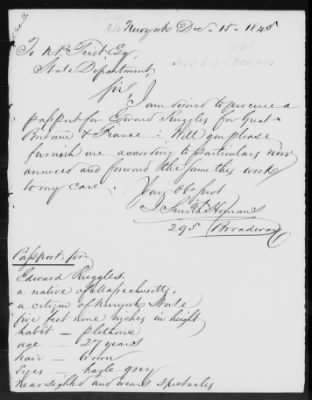 Newyork Dec. 15. 1845
To N. P. Trist Esq.
State Department,
Sir,
I am desired to procure a
passport for Edward Ruggles for Great-
Britain & France: Will you please
furnish one according to particulars now
annexed and forward the same this week
to my care.
Your Ob. Servt
J. Smith Homans
295 Broadway
Passport for
Edward Ruggles.
a native of Massachusetts.
a citizen of Newyork State
five feet nine inches in height
habit — plethoric
age — 27 years
hair — brown
Eyes — hazle grey
near sighted and wears spectacles